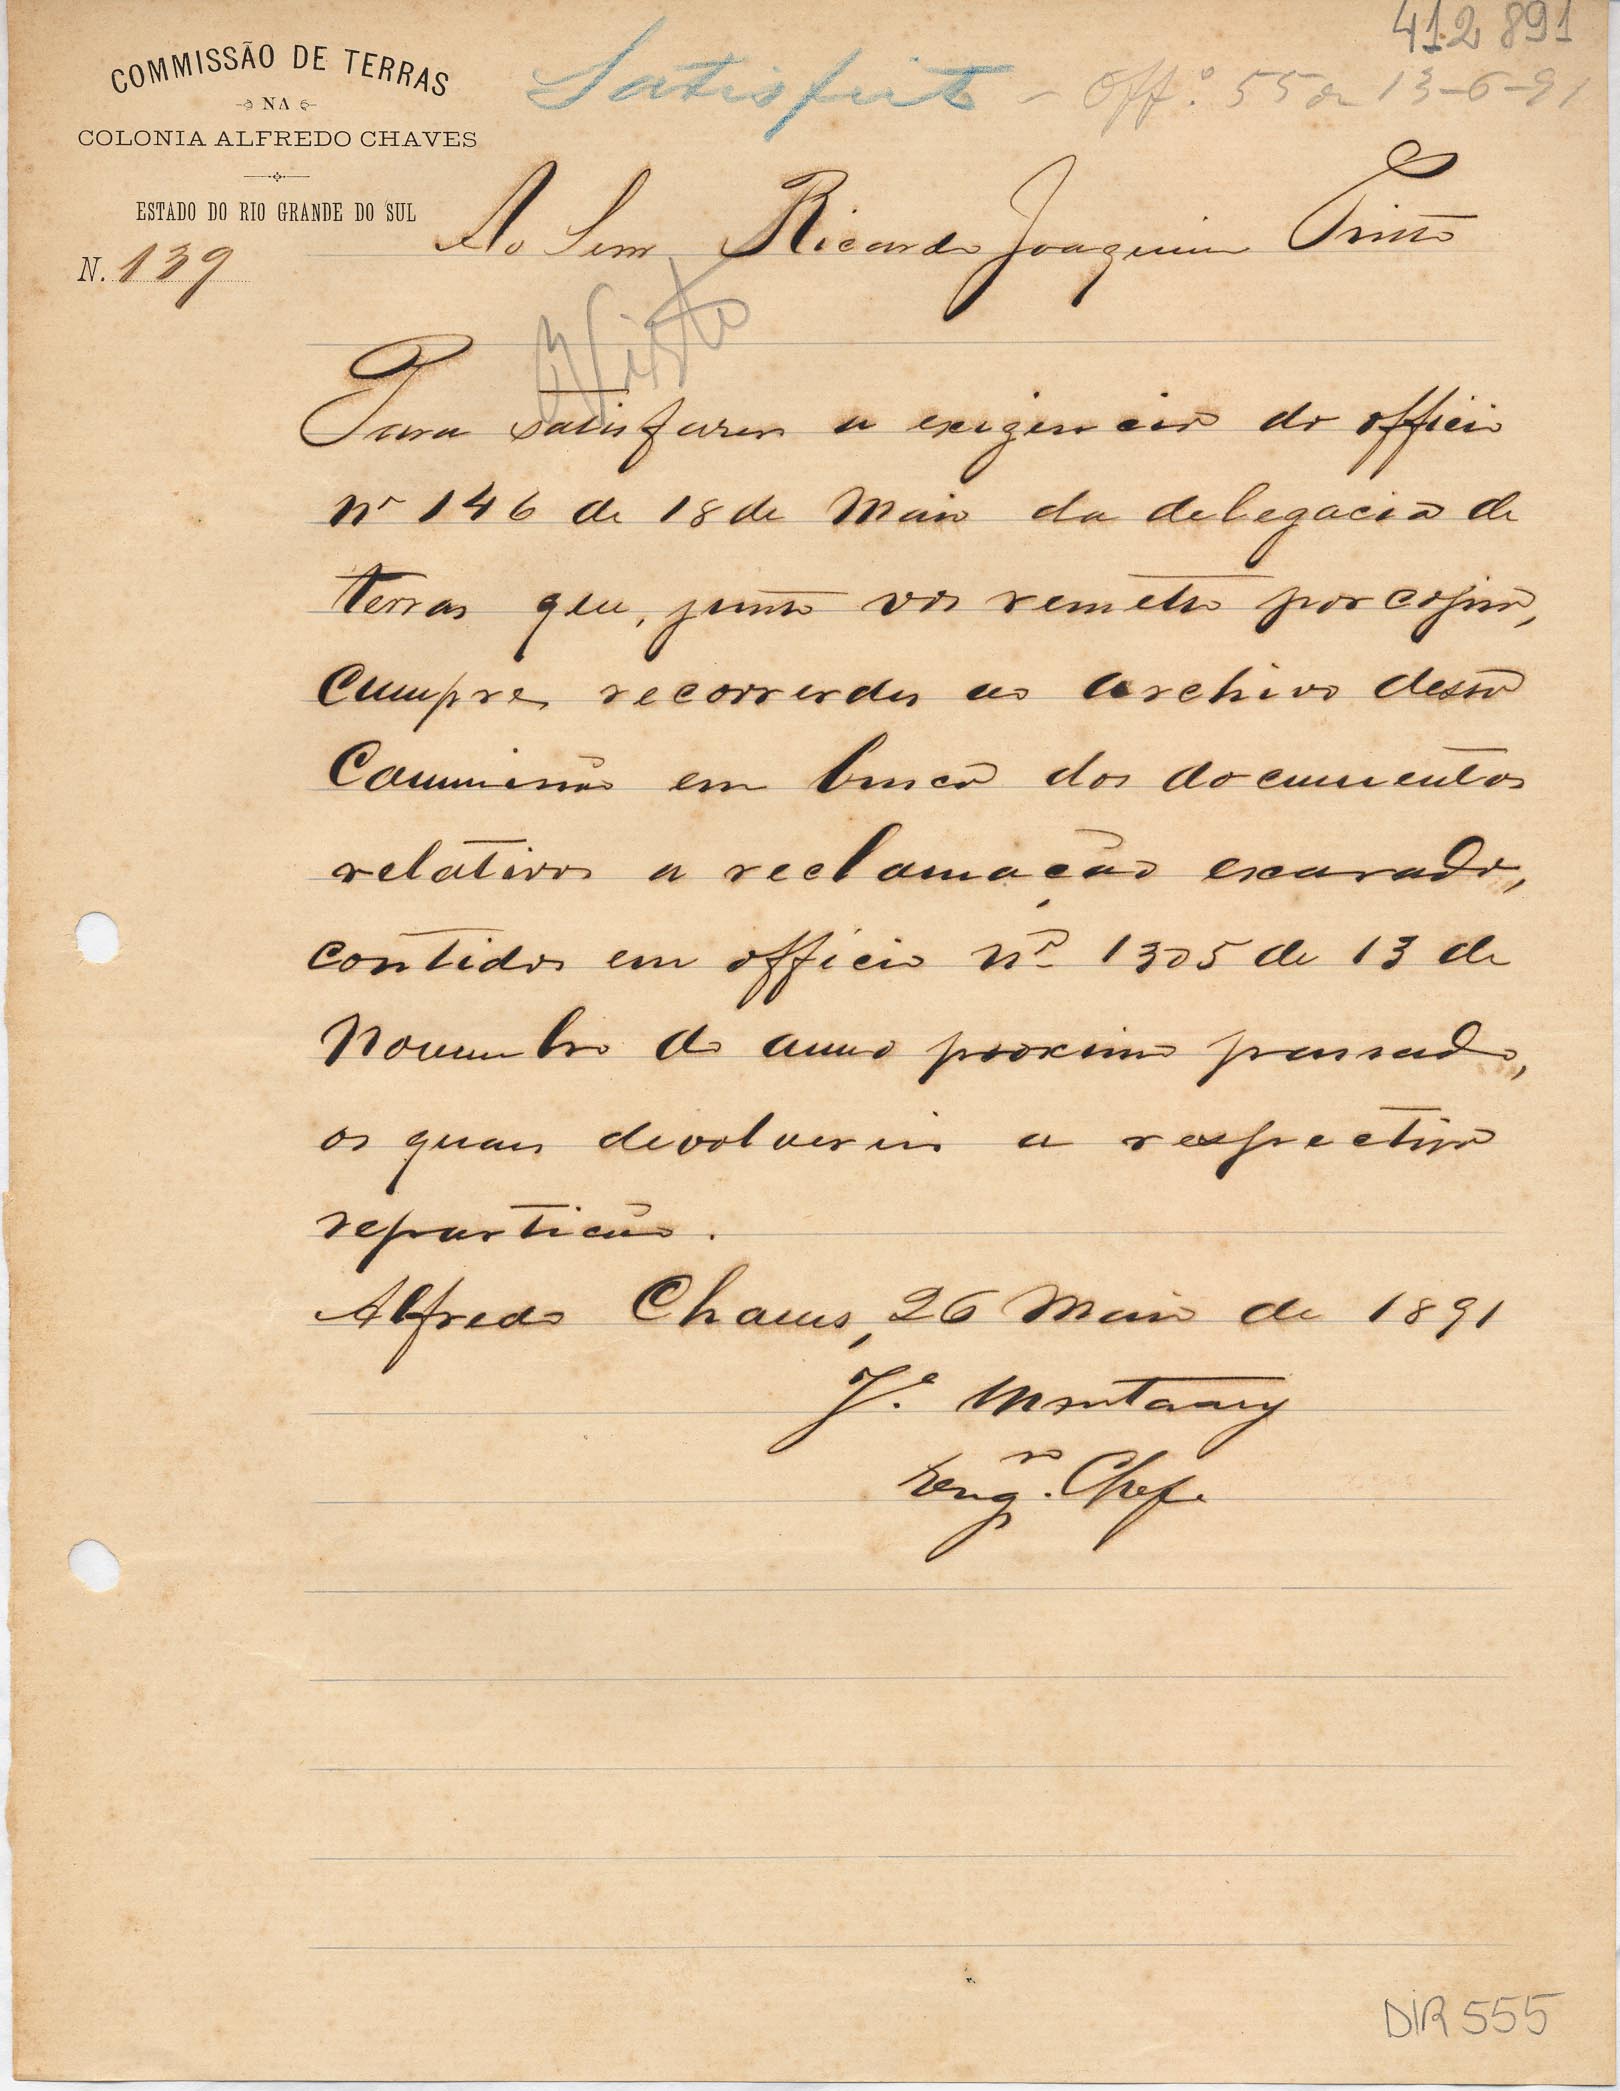 412 891
COMMISSÃO DE TERRAS
NA
COLONIA ALFREDO CHAVES
ESTADO DO RIO GRANDE DO SUL
N. 139
Satisfeito - Off.º 55 de 13-6-91
Ao Senr Ricardo Joaquim Pinto
Visto
Para satisfazer a exigencia do officio
nº 146 de 18 de Maio da delegacia de
terras que, junto vos remetto por copia,
cumpre recorrerdes ao archivo dessa
Commissão em busca dos documentos
relativos a reclamação exarada,
contidos em officio nº 1305 de 13 de
Novembro do anno proximo passado,
os quaes devolvereis a respectiva
repartição.
Alfredo Chaves, 26 Maio de 1891
Je. Montaury
Engro. Chefe
DIR 555